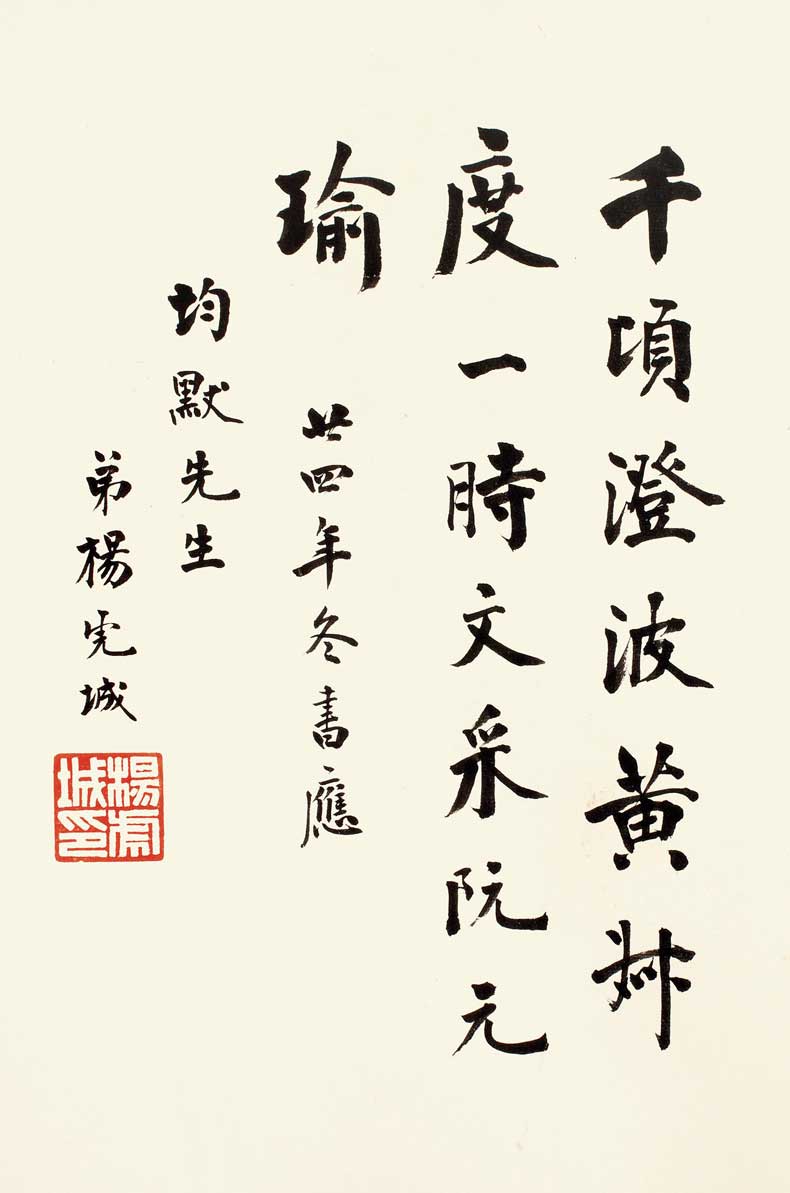 千頃澄波黄叔
度一時文采阮元
瑜
廿四年冬書應
均默先生
弟楊虎城
楊虎
城印